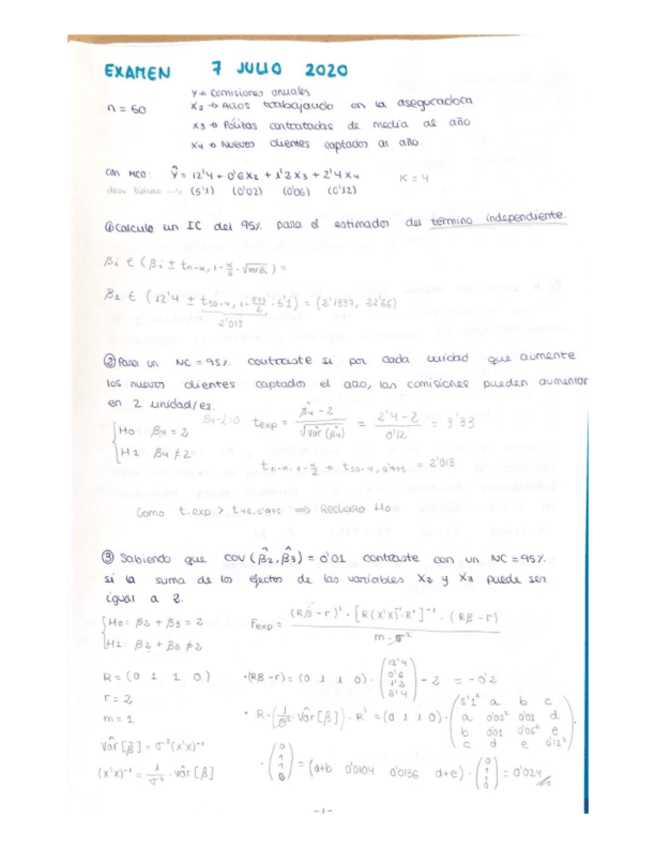 EXAMEN 7 JULIO 2020
n = 50
Y → Comisiones anuales
X2 → Años trabajando en la aseguradora
X3 → Pólizas contratadas de media al año
X4 → Nuevos clientes captados al año
Con MCO: Ŷ = 12'4 + 0'6 X2 + 1'2 X3 + 2'4 X4 K = 4
desv típicas → (5'1) (0'02) (0'06) (0'12)
① Calcule un IC del 95% para el estimador del término independiente.
βi ∈ (β̂i ± t n-k, 1-α/2 · √var β̂i) =
β1 ∈ (12'4 ± t 50-4, 1-0'05/2 · 5'1) = (2'1337, 22'66)
2'013
② Para un NC = 95% contraste si por cada unidad que aumente
los nuevos clientes captados el año, las comisiones pueden aumentar
en 2 unidad/es.
β4-2=0
H0: β4 = 2
H1: β4 ≠ 2
texp = (β̂4 - 2) / √Vâr(β̂4) = (2'4 - 2) / 0'12 = 3'33
t n-k, 1-α/2 → t 50-4, 0'975 = 2'013
Como t.exp > t46,0'975 ⟹ Rechazo H0
③ Sabiendo que COV (β̂2, β̂3) = 0'01 contraste con un NC = 95%
si la suma de los efectos de las variables X2 y X3 puede ser
igual a 2.
H0: β2 + β3 = 2
H1: β2 + β3 ≠ 2
Fexp = (Rβ̂ - r)' · [R(X'X)⁻¹ · R']⁻¹ · (Rβ̂ - r) / m · σ̂²
R = (0 1 1 0)
r = 2
m = 1
Vâr[β̂] = σ²(X'X)⁻¹
(X'X)⁻¹ = 1/σ² · Vâr[β̂]
· (Rβ̂ - r) = (0 1 1 0) · (12'4 0'6 1'2 2'4) - 2 = -0'2
· R · (1/σ̂² · Vâr[β̂]) · R' = (0 1 1 0) ·
5'1² a b c
a 0'02² 0'01 d
b 0'01 0'06² e
c d e 0'12²
· (0 1 1 0) = (a+b 0'0104 0'0136 d+e) · (0 1 1 0) = 0'024
-1-